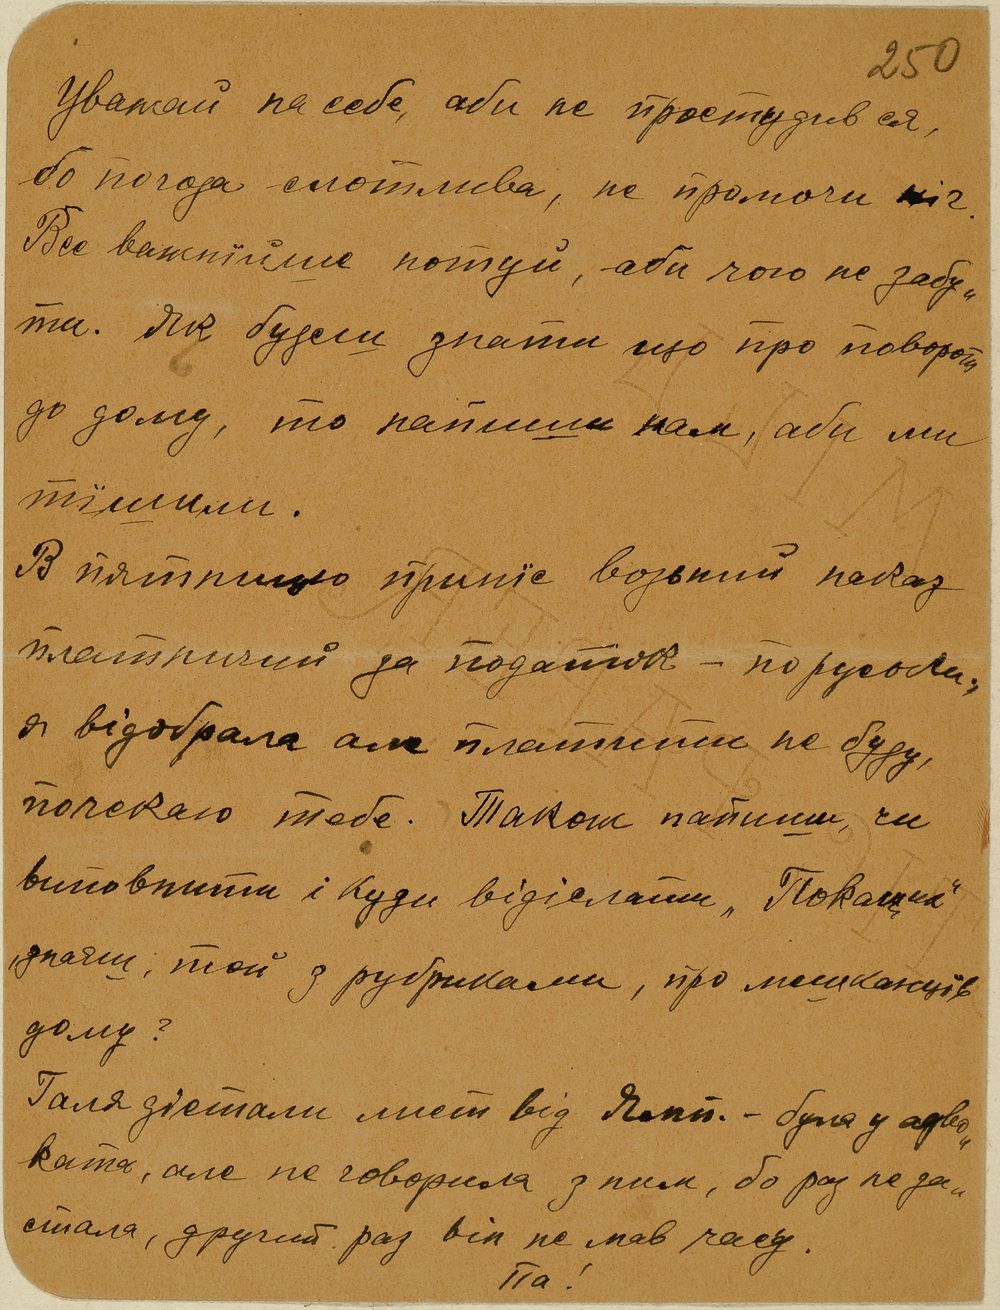 250
Уважай на себе, аби не простудився,
бо погода слотлива, не промочи ніг.
Все важнїйше нотуй, аби чого не забу„
ти. Як будеш знати що про поворот
до дому, то напиши нам, аби ми
тїшили.
В пятницю принїс возьний наказ
платничий за податок – по русски„
я відобрала але платити не буду,
почекаю тебе. Також напиши, чи
виповнити і куди відіслати „Показчик"
знаєш, той з рубриками, про мешканців
дому?
Галя дістали лист від Ямп. – була у адво„
ката, але не говорила з ним, бо раз не за„
стала, другий раз він не мав часу.
Па!